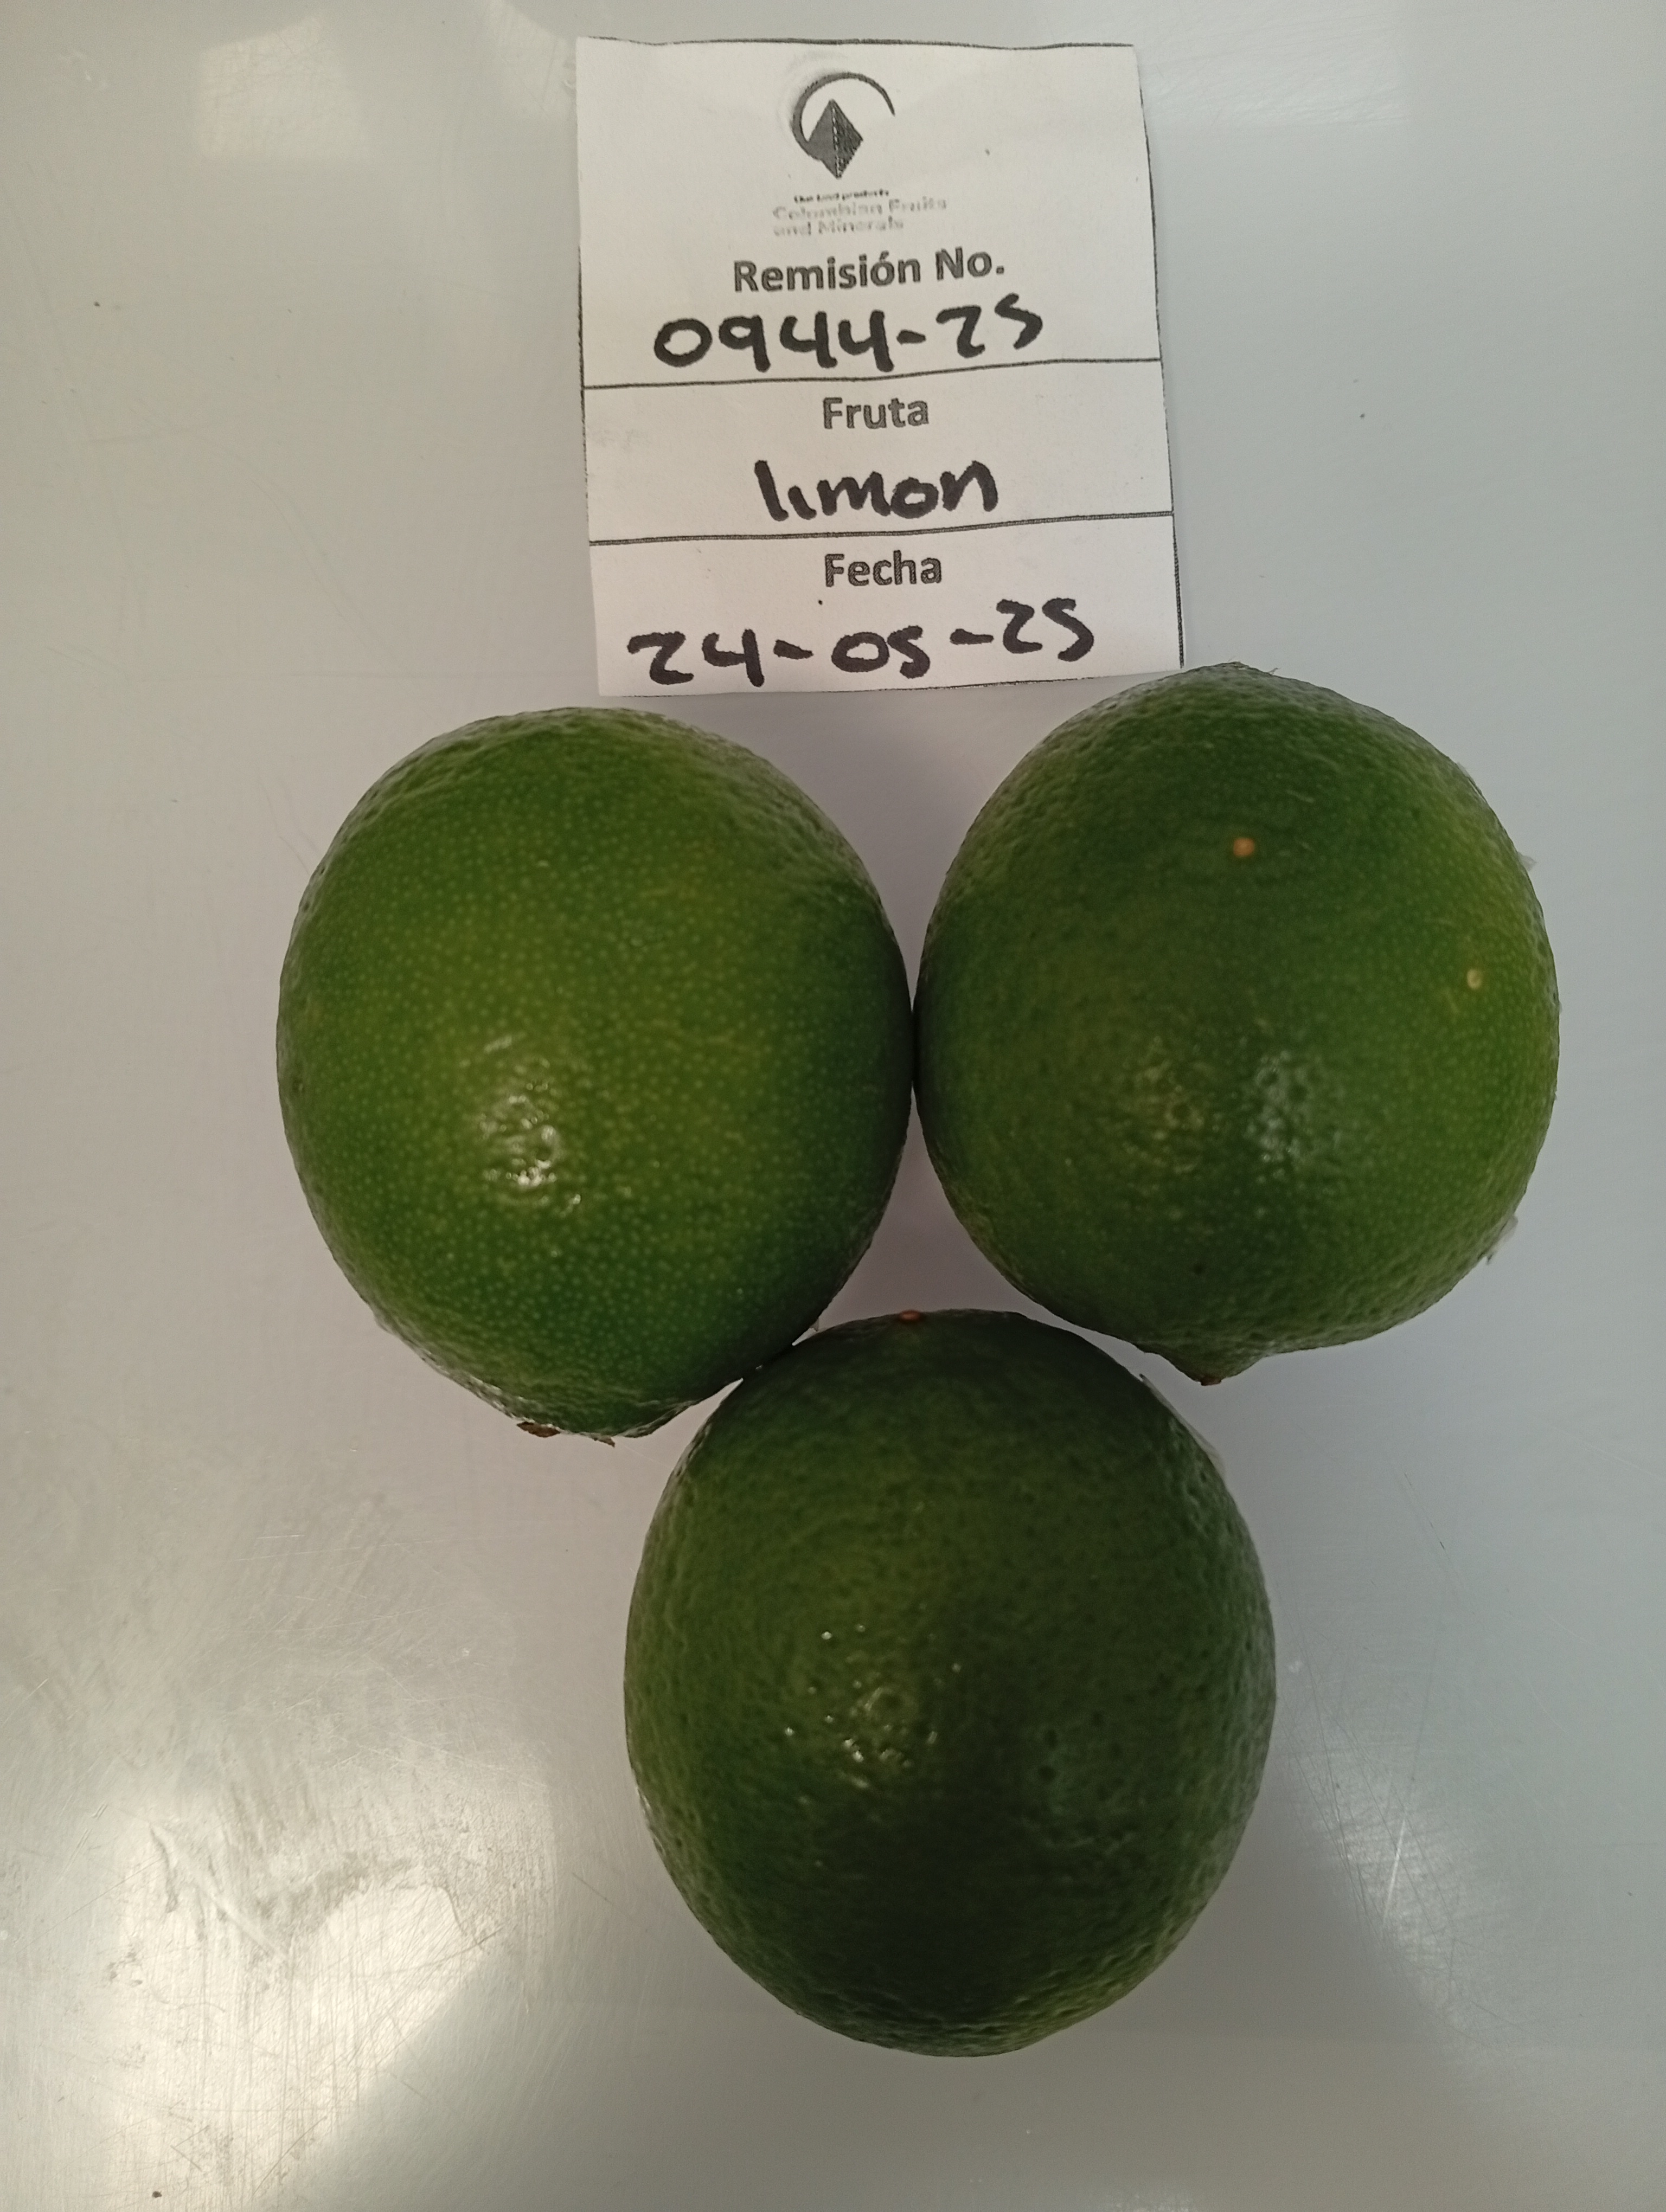 the best products
Colombian Fruits
and Minerals
Remisión No.
0944-25
Fruta
limon
Fecha
24-05-25